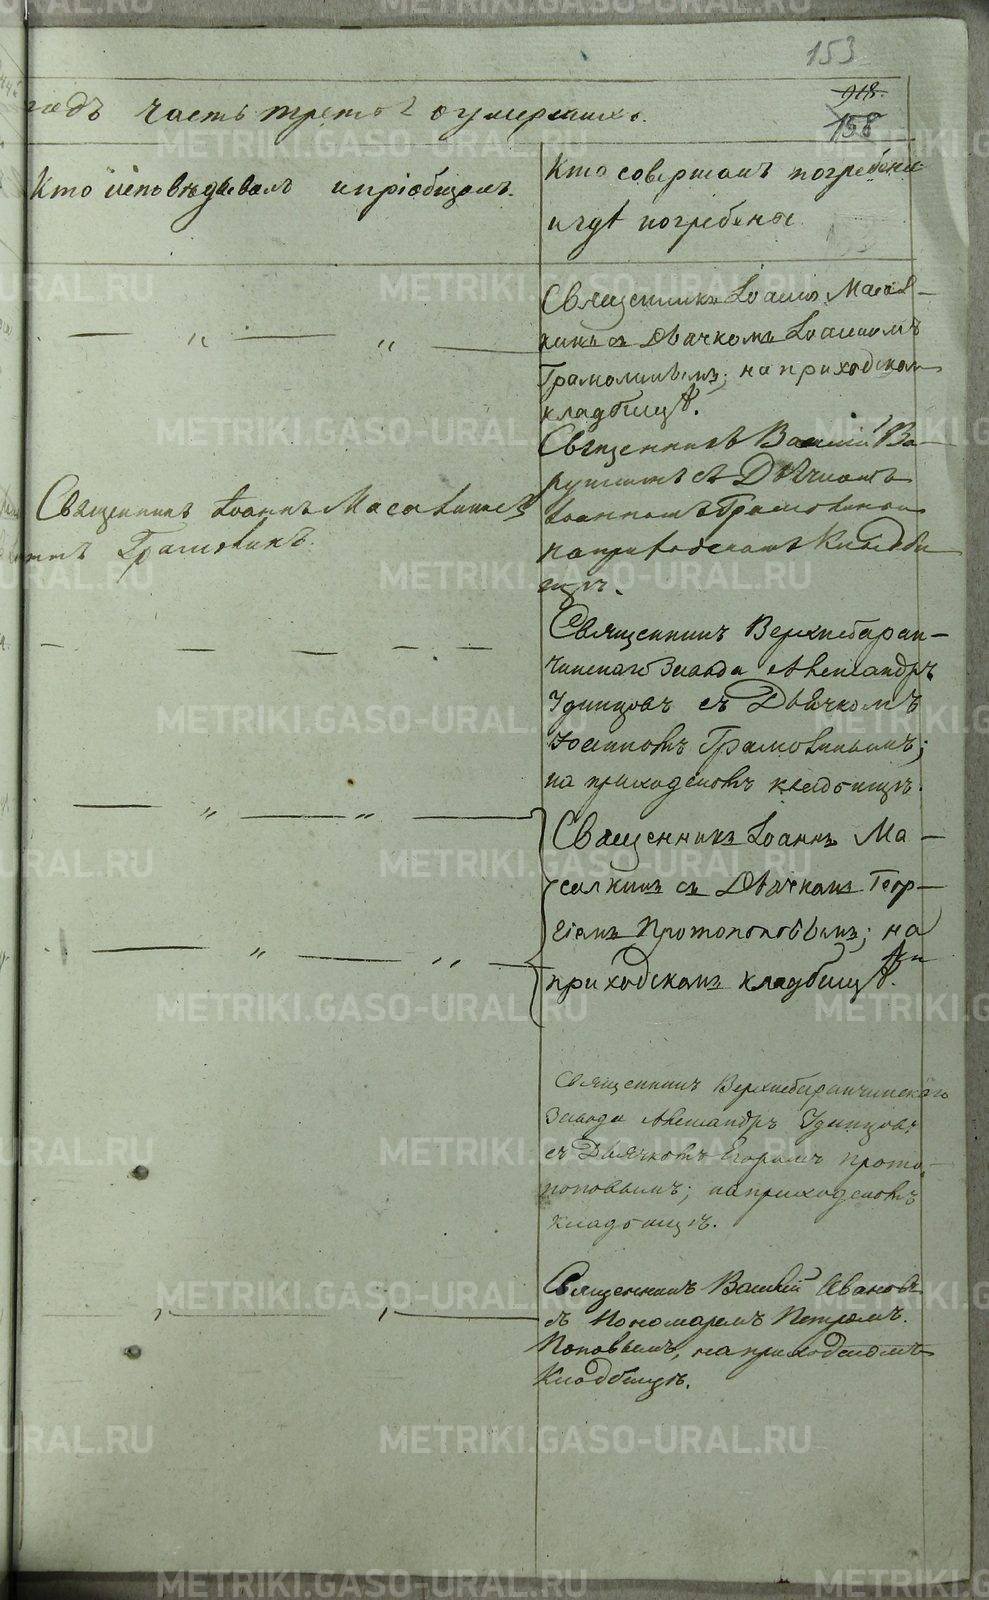 153
918.
158
годъ часть третья о умершихъ.
Кто исповѣдывалъ и пріобщалъ.
Кто совершалъ погребеніе
и гдѣ погребены
Священникъ Іоаннъ Масал-
кинъ съ Дьячкомъ Іоанномъ
Грамолинымъ; на приходскомъ
кладбищѣ.
Священникъ Василій Ва-
съ Дьячкомъ
Іоанномъ
на приходскомъ Кладби
щѣ.
Священникъ Іоаннъ Масалкинъ
Священникъ Верхнебаран-
чинскаго Завода Александръ
Удинцовъ съ Дьячкомъ
Іоанномъ
на приходскомъ кладбищѣ.
Священникъ Іоаннъ Ма-
салкинъ съ Дьячкомъ Геор-
гіемъ Протопоповымъ; на
приходскомъ кладбищѣ.
Священникъ Верхнебаранчинскаго
Завода Александръ Удинцовъ
съ Дьячкомъ Егоромъ Прото-
поповымъ; на приходскомъ
кладбищѣ.
Священникъ Василій Ивановъ
съ Пономаремъ Петромъ
Поповымъ, на приходскомъ
Кладбищѣ.
METRIKI.GASO-URAL.RU